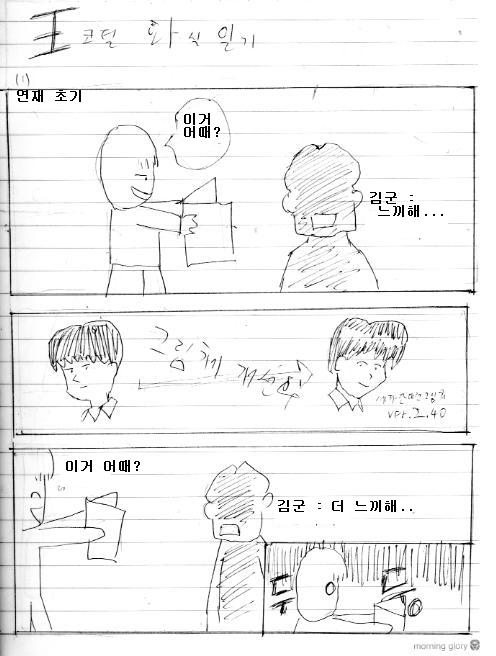 코털 화식 일기
(1)
연재 초기
이거
어때?
김군 :
느끼해...
그림체 개선
ver.2.40
이거 어때?
김군 : 더 느끼해..
morning glory